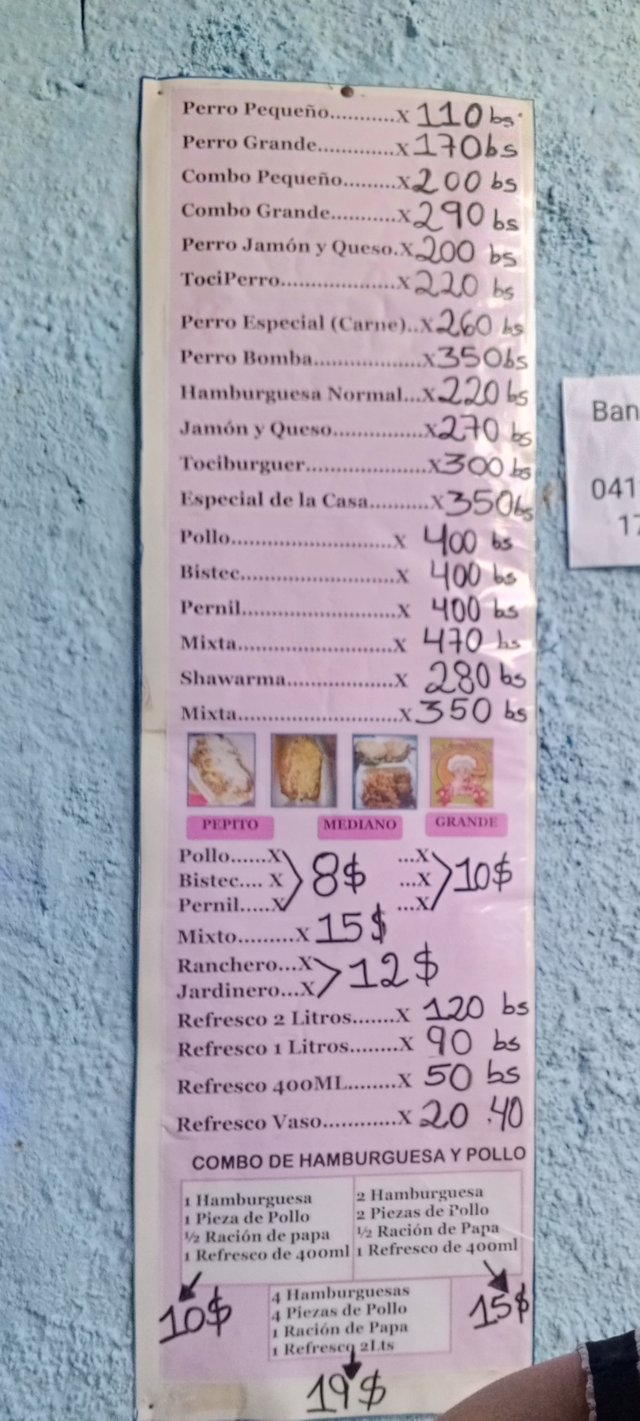 Perro Pequeño...........X 110 bs.
Perro Grande.............X 170bs
Combo Pequeño.........X 200 bs
Combo Grande...........X 290 bs
Perro Jamón y Queso.X 200 bs
TociPerro...................X 220 bs
Perro Especial (Carne)..X 260 bs
Perro Bomba..................X 350bs
Hamburguesa Normal...X 220 bs
Jamón y Queso...............X 270 bs
Tociburguer....................X 300 bs
Especial de la Casa..........X 350bs
Pollo...........................X 400 bs
Bistec..........................X 400 bs
Pernil..........................X 400 bs
Mixta..........................X 470 bs
Shawarma..................X 280 bs
Mixta...........................X 350 bs
PEPITO MEDIANO GRANDE
Pollo......X ...X
Bistec.... X 8$ ...X 10$
Pernil.....X ...X
Mixto.........X 15$
Ranchero...X 12$
Jardinero...X
Refresco 2 Litros.......X 120 bs
Refresco 1 Litros........X 90 bs
Refresco 400ML........X 50 bs
Refresco Vaso............X 20 .40
COMBO DE HAMBURGUESA Y POLLO
1 Hamburguesa
1 Pieza de Pollo
½ Ración de papa
1 Refresco de 400ml
10$
2 Hamburguesa
2 Piezas de Pollo
½ Ración de Papa
1 Refresco de 400ml
15$
4 Hamburguesas
4 Piezas de Pollo
1 Ración de Papa
1 Refresco 2Lts
19$
Ban
041
17